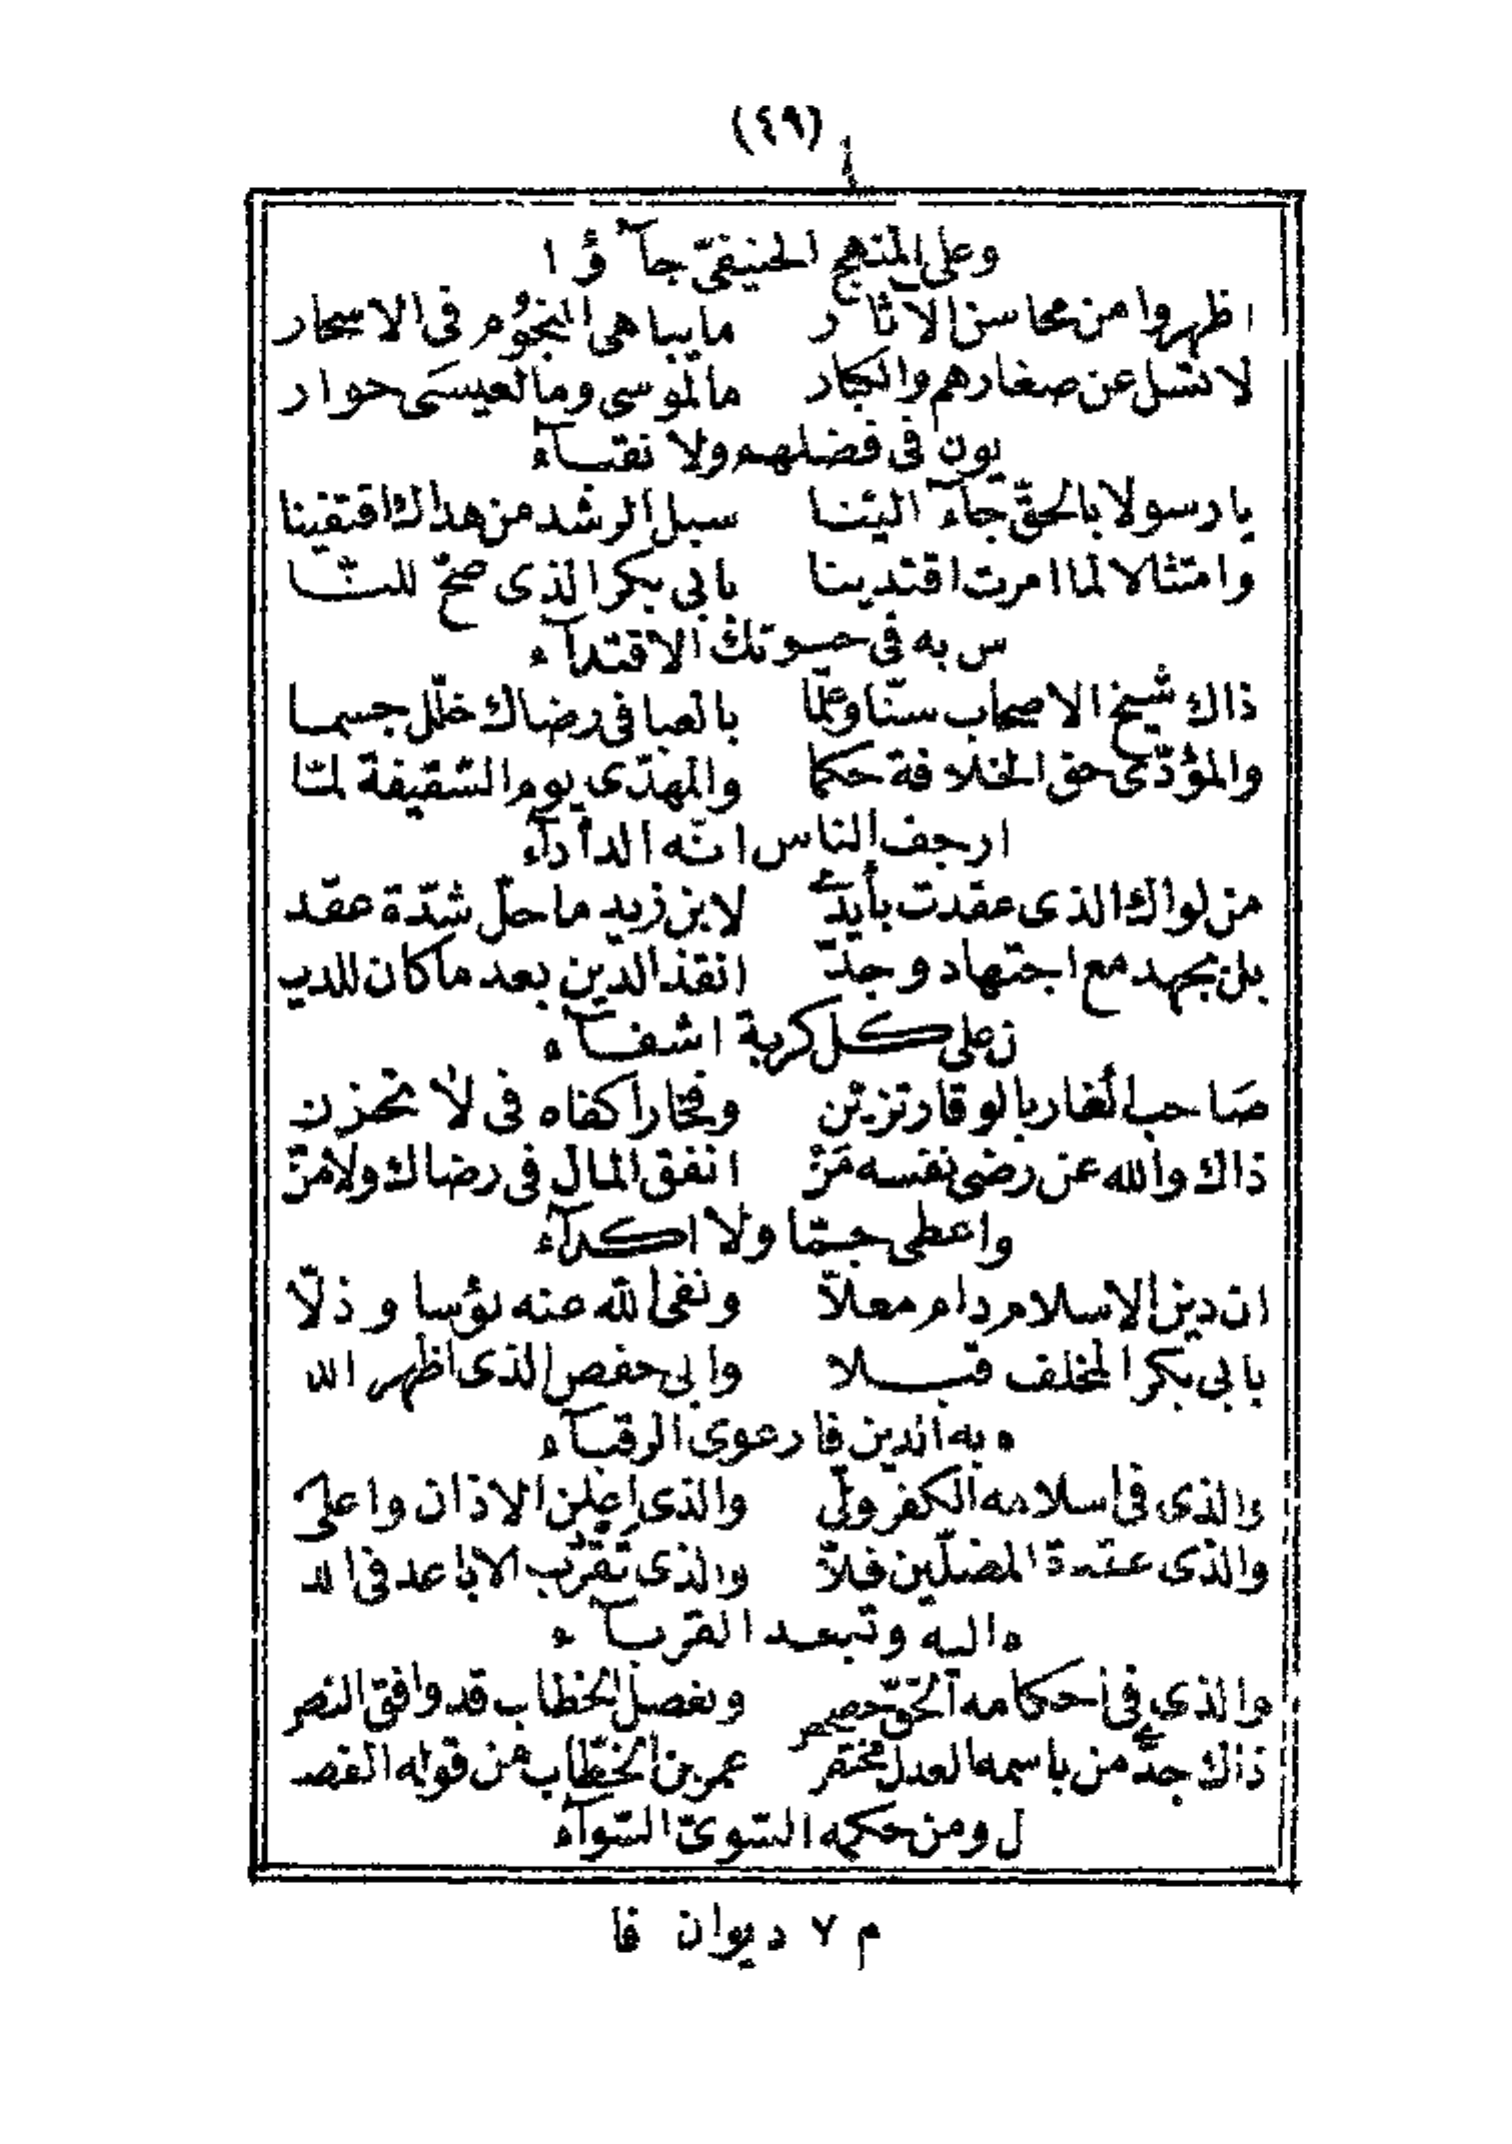 (٤٩)
وعلى المنهج الحنيفىّ جآؤا
اظهروا من محاسن الاثار مايباهى النجوم فى الاسحار
لاتسل عن صغارهم والكبار مالموسى ومالعيسى حوار
يون فى فضلهم ولا نقبآء
يا رسولا بالحقّ جآء الينا سبل الرشد من هداك اقتفينا
وامتثالا لما امرت اقتدينا بابى بكر الذى صحّ للنّا
س به فى حيوتك الاقتدآء
ذاك شيخ الاصحاب سنّا وعلما بالعبا فى رضاك خلّل جسما
والمؤدّى حق الخلافة حكما والمهدّى يوم السّقيفة لمّا
ارجف الناس انّه الدأدآء
من لواك الذى عقدت بأيد لابن زيد ماحلّ شدّة عقد
بل بجهد مع اجتهاد وجدّ انقذ الدين بعد ماكان للدي
ن على كل كربة اشفآء
صاحب الغار بالوقار تزيّن وفخارا كفاه فى لا تحزن
ذاك والله عن رضى نفسه مَنْ انفق المال فى رضاك ولا منّ
واعطى جمّا ولا اكدآء
ان دين الاسلام دام معلاّ ونفى الله عنه بؤسا وذلّا
بابى بكر المخلف قبلا وابى حفص الذى اظهر الل
ه به الدين فارعوى الرقبآء
والذى فى اسلامه الكفر ولّى والذى اعلن الاذان واعلى
والذى عقدة المضلّين فلاّ والذى تقرّب الاباعد فى الل
ه اليه وتبعد القربآء
والذى فى احكامه الحقّ حصحص وبفصل الخطاب قد وافق النص
ذاك جدّى من باسمه العدل مختص عمر بن الخطّاب من قوله الفص
ل ومن حكمه السّوىّ السّوآء
م ٧ ديوان فا